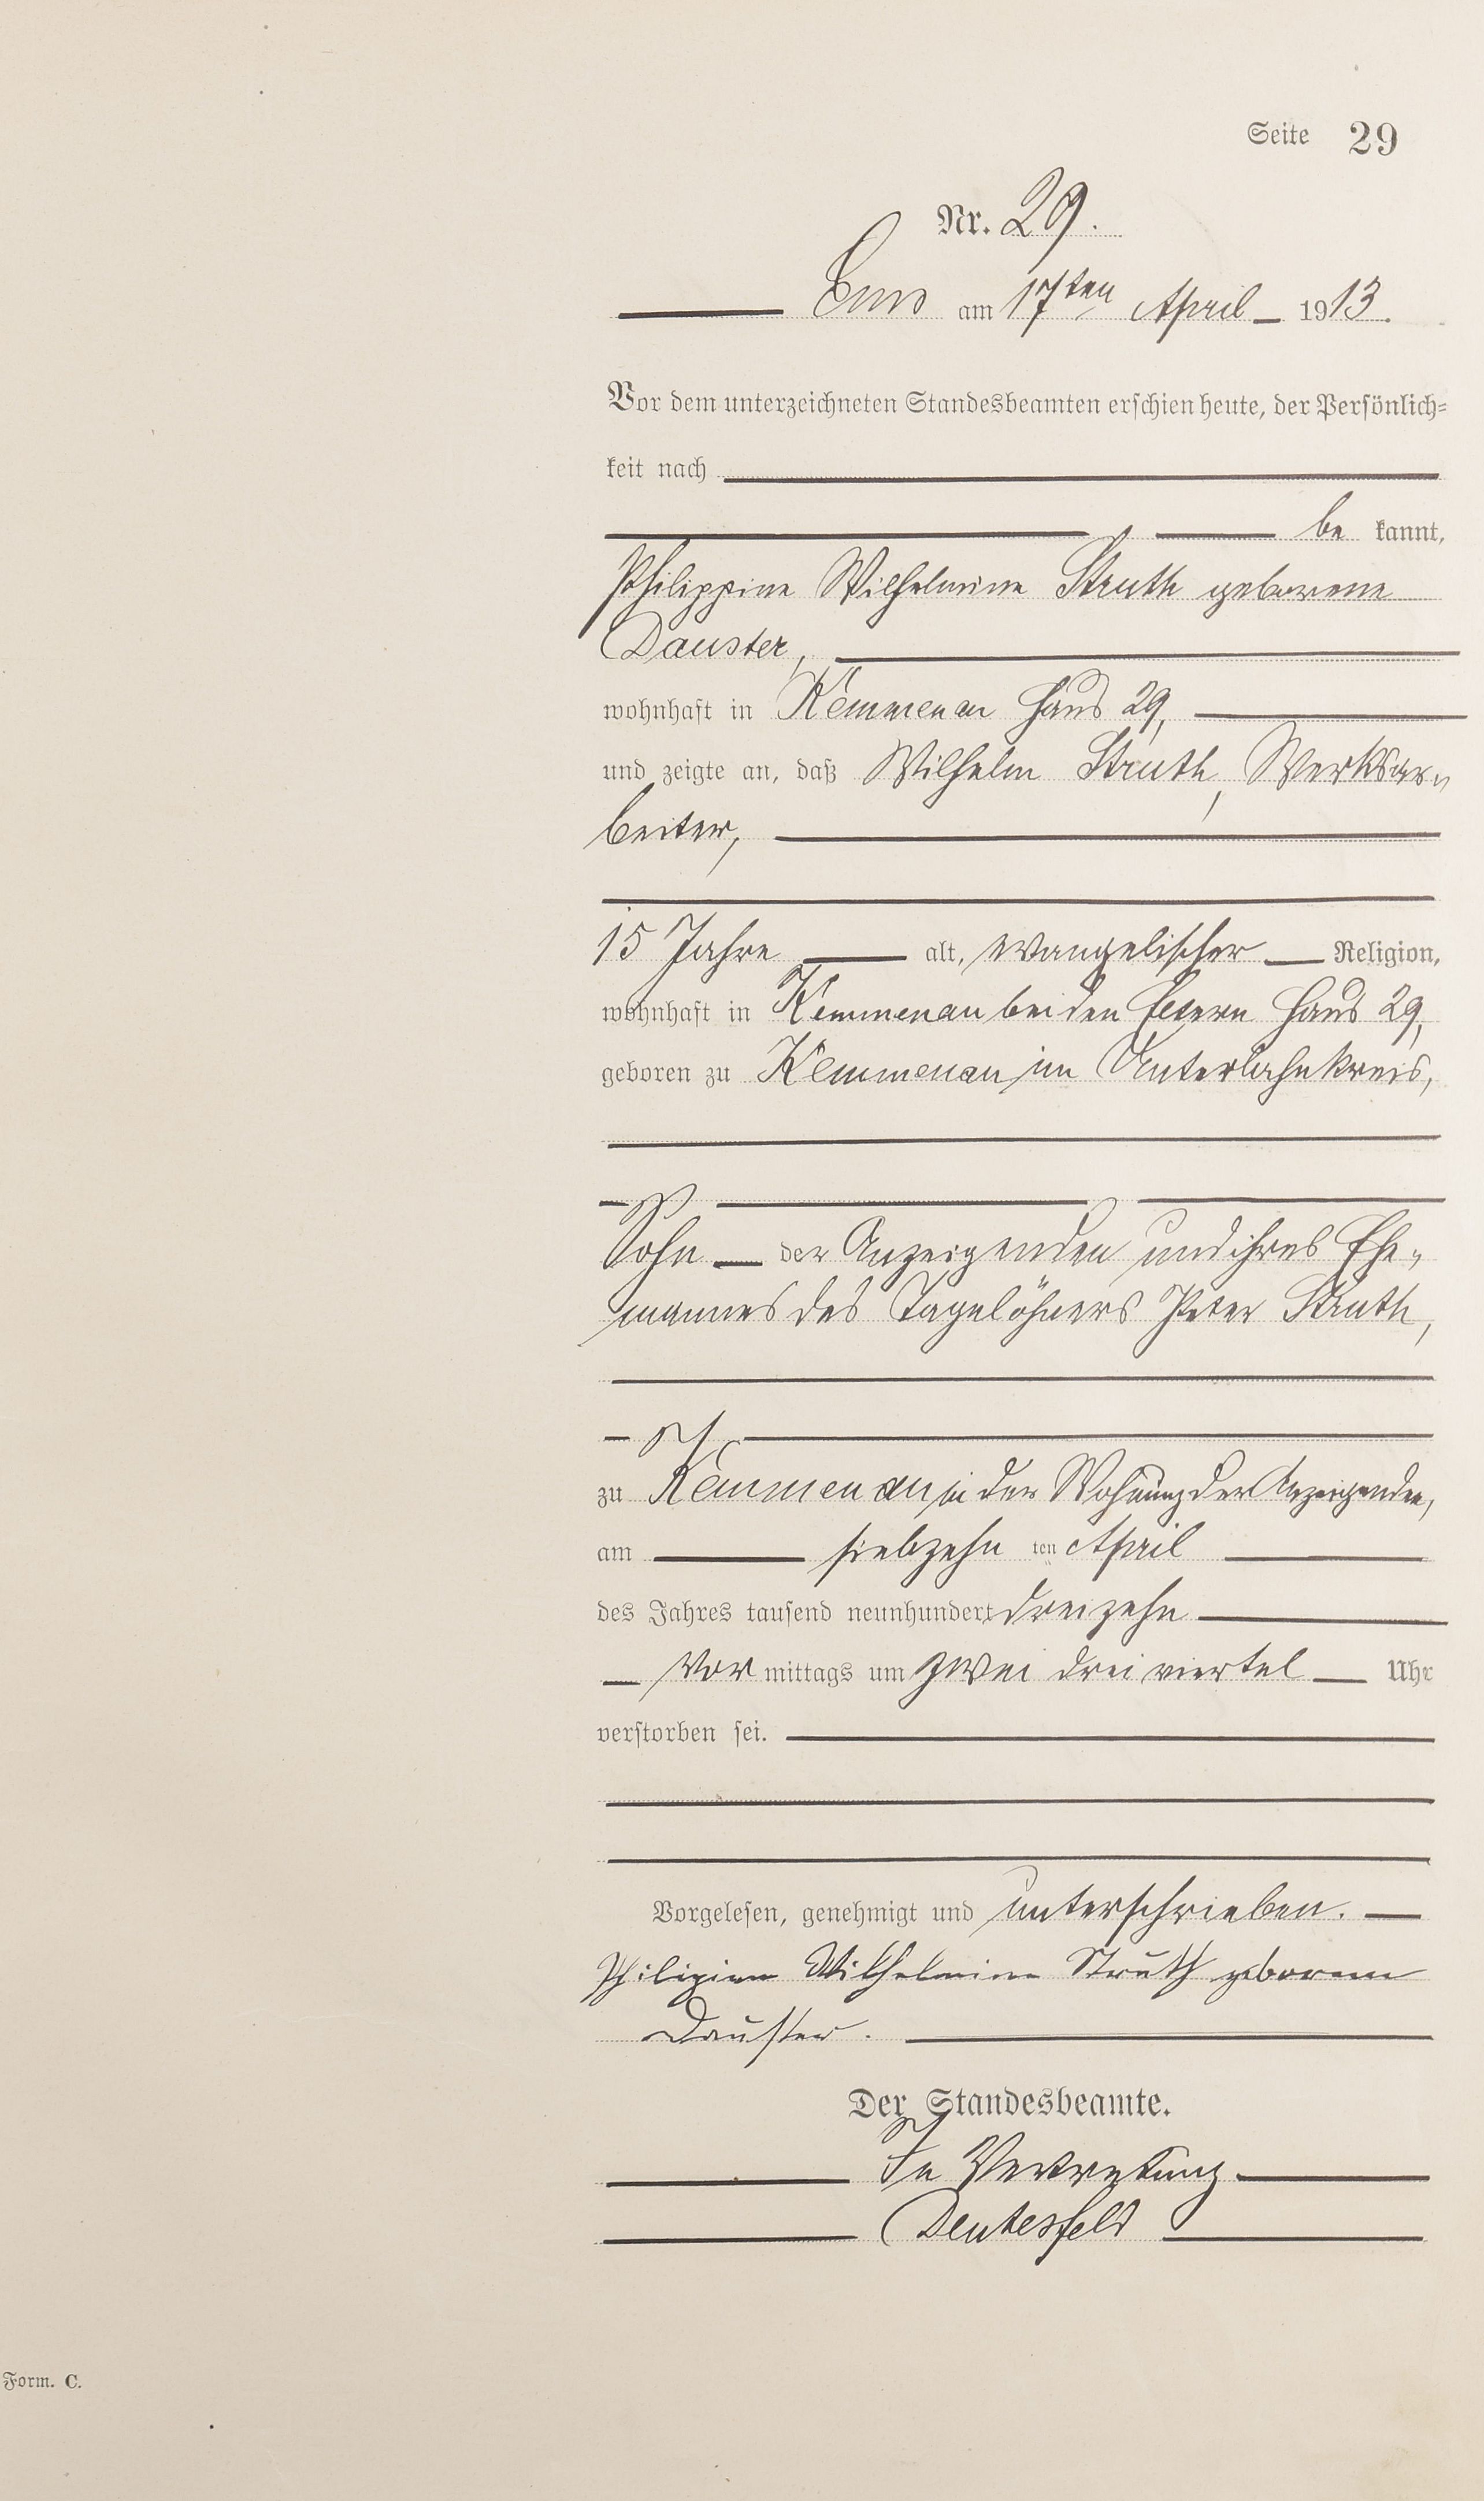 Seite 29
Nr. 29.
Ems am 17ten April 1913.
Vor dem unterzeichneten Standesbeamten erschien heute, der Persönlich-
keit nach
be kannt,
Philippine Wilhelmine Struth geborene
Dauster,
wohnhaft in Kemmenau Haus 29,
und zeigte an, daß Wilhelm Struth, Werksar-
beiter,
15 Jahre alt, evangelischer Religion,
wohnhaft in Kemmenau bei den Eltern Haus 29,
geboren zu Kemmenau im Unterlahnkreis,
Sohn der Anzeigenden und ihres Ehe-
mannes des Tagelöhners Peter Struth,
zu Kemmenau in der Wohnung der Anzeigenden,
am siebzehn ten April
des Jahres tausend neunhundert dreizehn
Vor mittags um zwei drei viertel Uhr
verstorben sei.
Vorgelesen, genehmigt und unterschrieben.
Philipine Wilhelmine Struth geborene
Dauster.
Der Standesbeamte.
In Vertretung
Deutesfeld
Form. C.